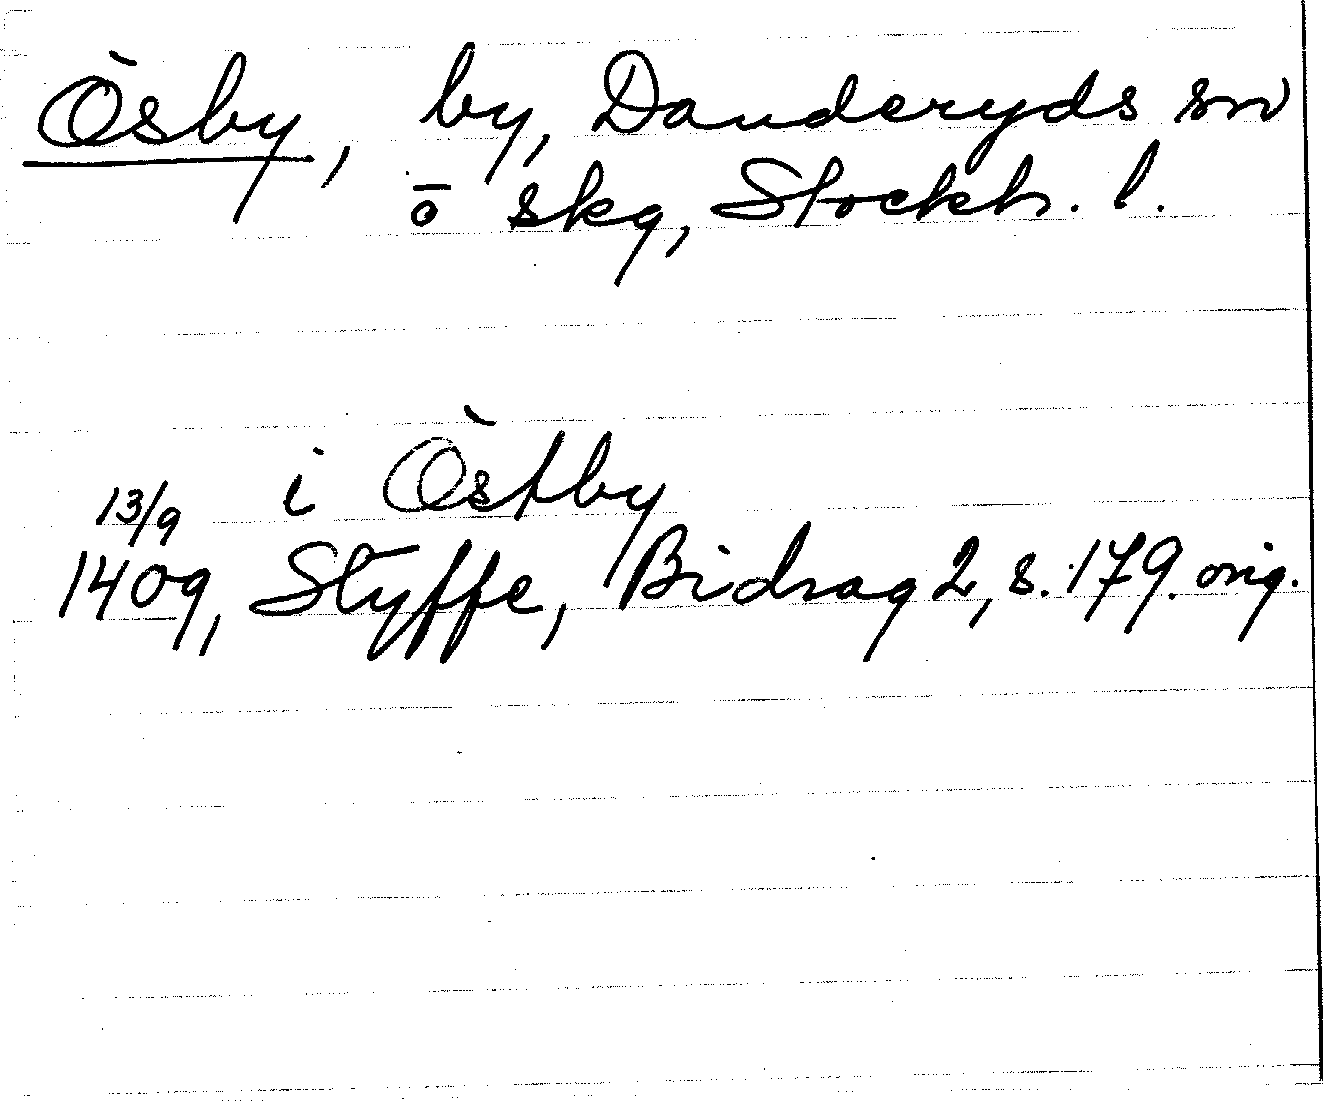 Ösby, by, Danderyds sn
ö skg, Stockh. l.
i Östby
13/9
1409, Styffe, Bidrag 2, s. 179. orig.